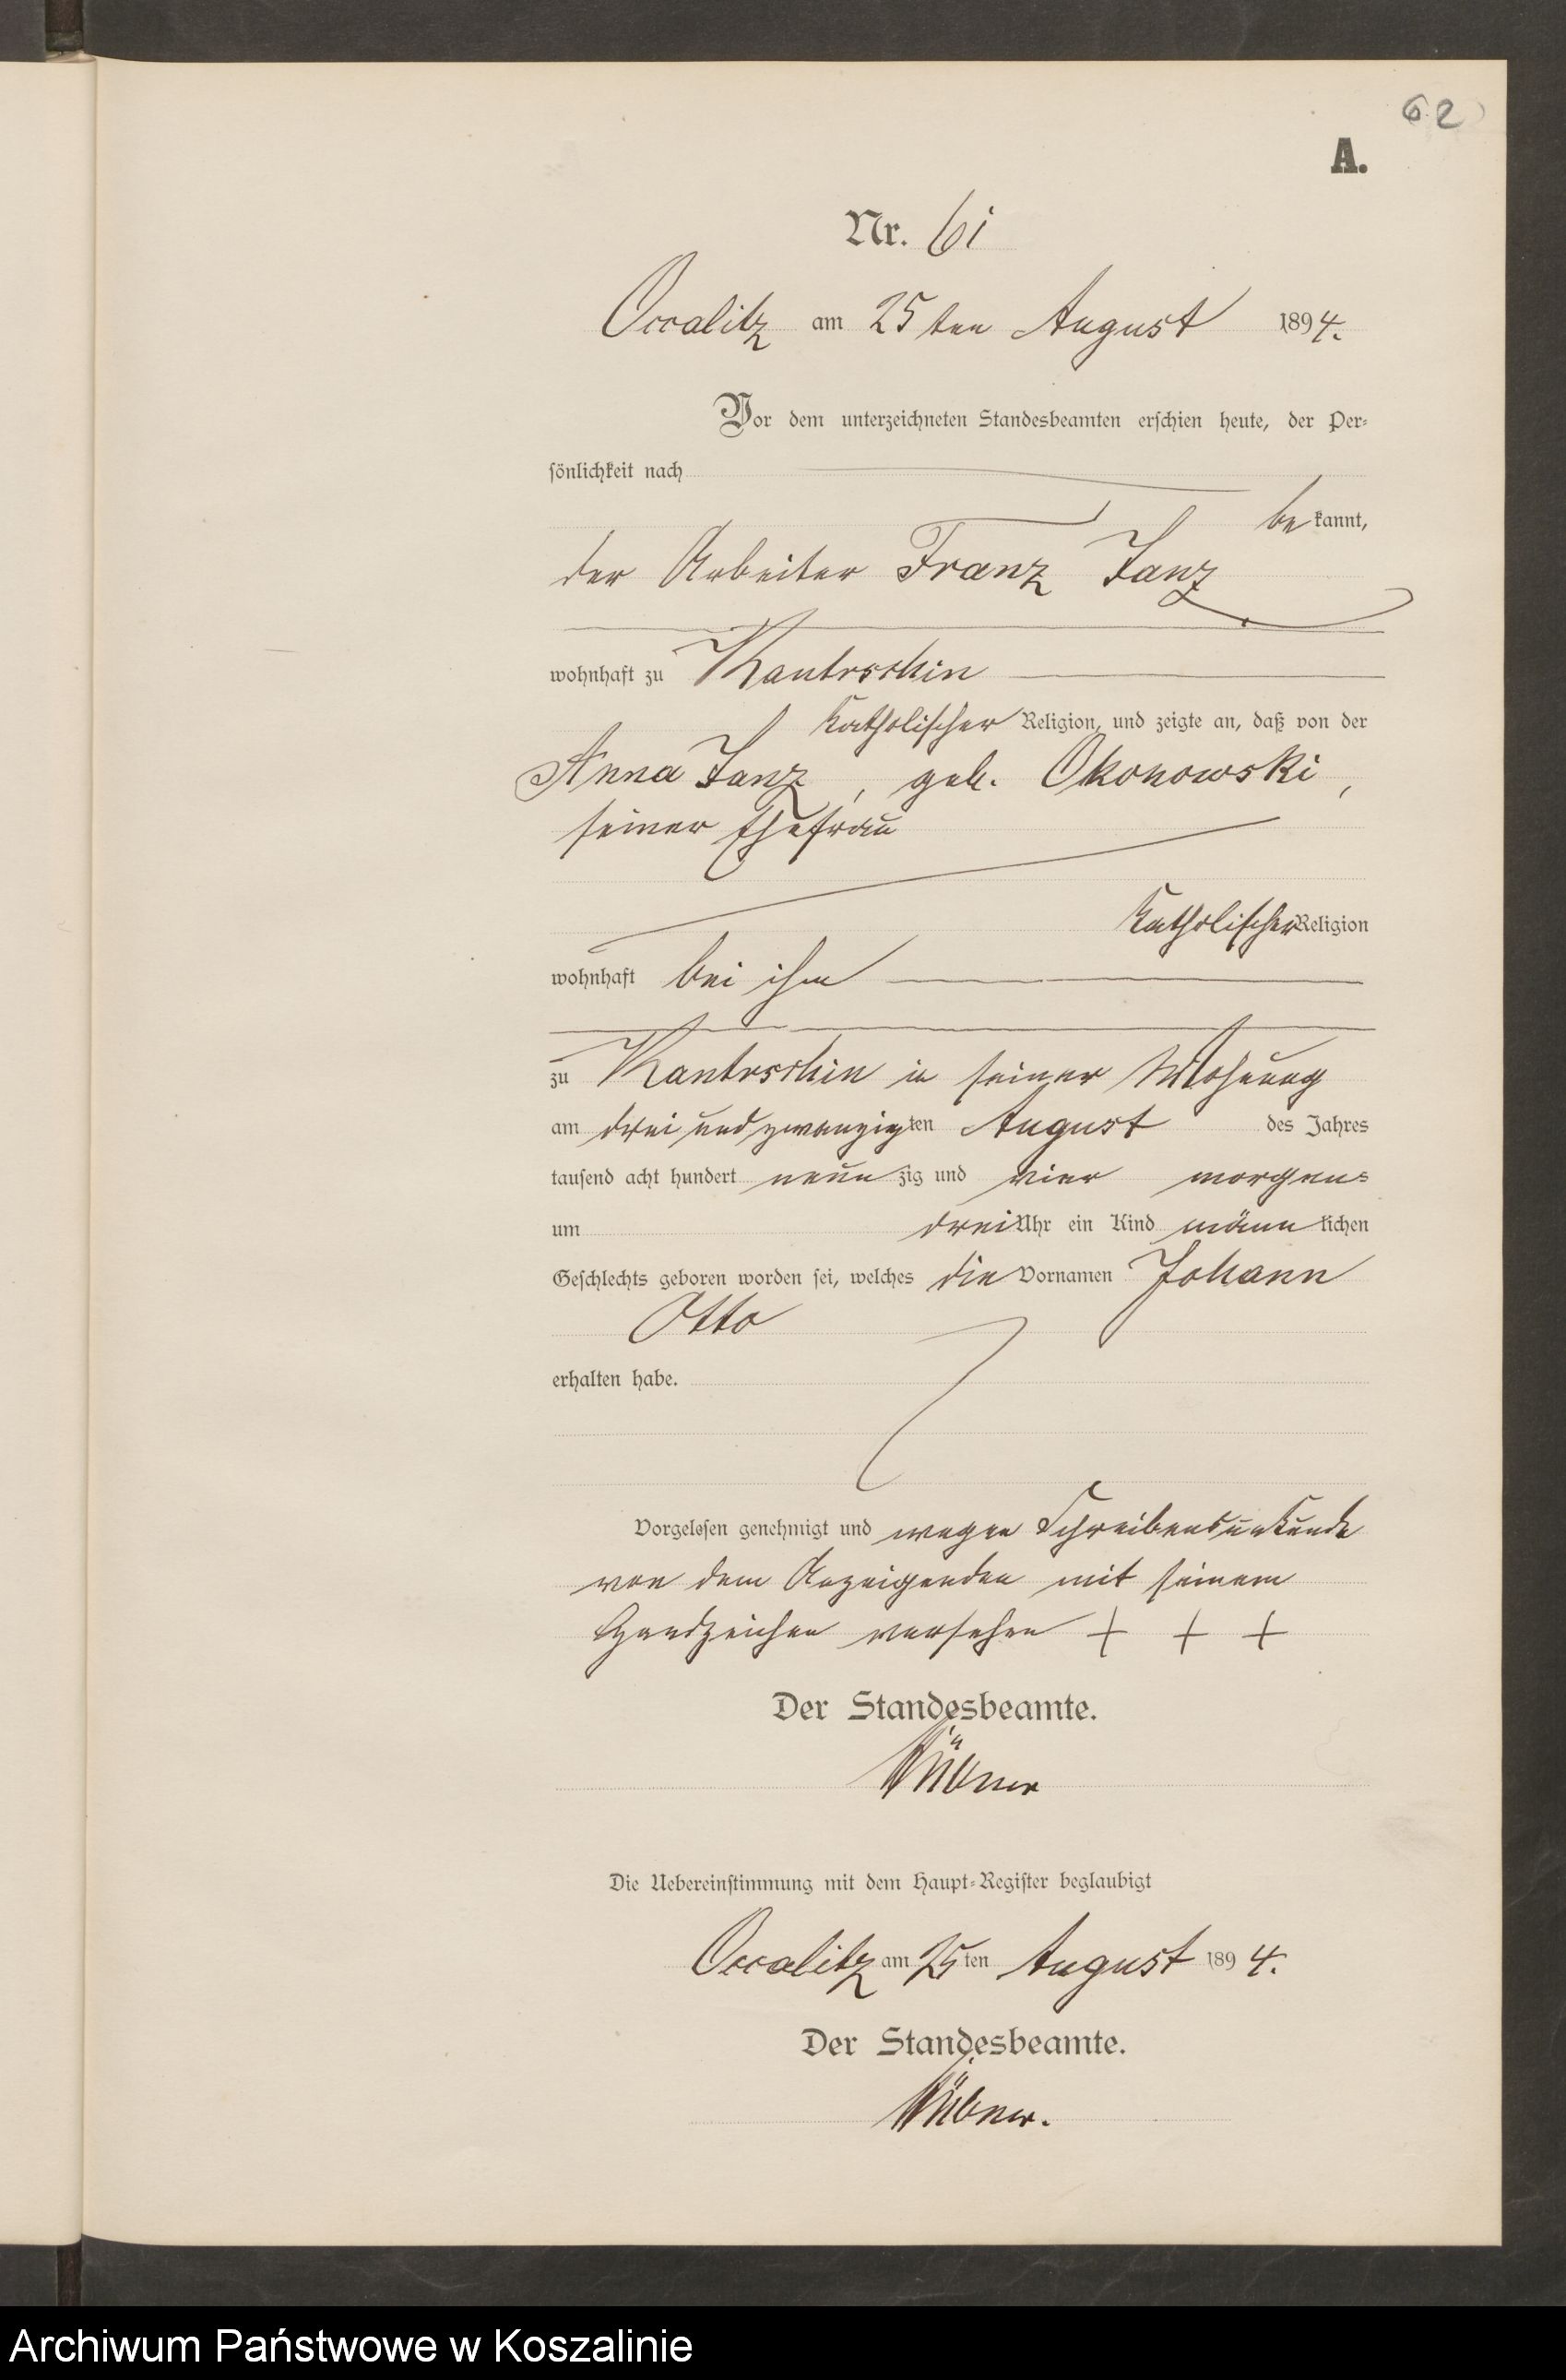 62
A.
Nr. 61
Occalitz am 25 ten August 1894.
Vor dem unterzeichneten Standesbeamten erschien heute, der Per-
sönlichkeit nach
be kannt,
der Arbeiter Franz Janz
wohnhaft zu Kantrschin
katholischer Religion, und zeigte an, daß von der
Anna Janz, geb. Okonowski,
seiner Ehefrau
katholischer Religion
wohnhaft bei ihm
zu Kantrschin in seiner Wohnung
am drei und zwanzigten August des Jahres
tausend acht hundert neun zig und vier morgen-
um drei Uhr ein Kind männ lichen
Geschlechts geboren worden sei, welches die Vornamen Johann
Otto
erhalten habe.
Vorgelesen genehmigt und wegen Schreibensunkunde
von dem Anzeigenden mit seinem
Handzeichen versehen + + +
Der Standesbeamte.
Die Uebereinstimmung mit dem Haupt-Register beglaubigt
Occalitz am 25 ten August 1894.
Der Standesbeamte.
Archiwum Państwowe w Koszalinie